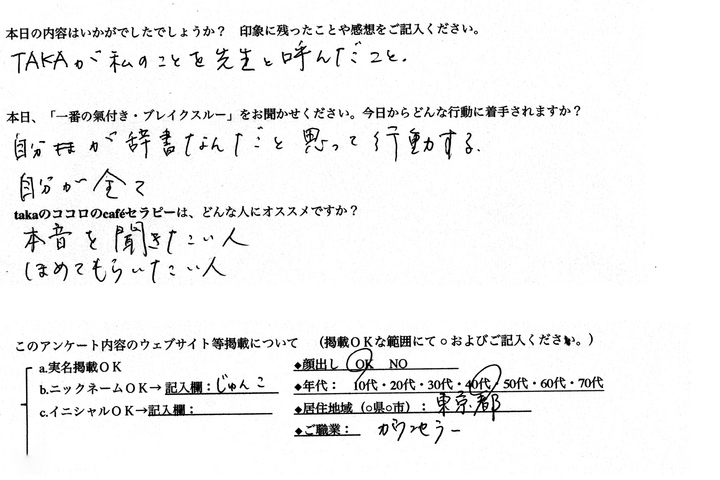 本日の内容はいかがでしたでしょうか？　印象に残ったことや感想をご記入ください。
TAKAが私のことを先生と呼んだこと.
本日、「一番の氣付き・ブレイクスルー」をお聞かせください。今日からどんな行動に着手されますか？
自分が辞書なんだと思って行動する.
自分が全て
takaのココロのcaféセラピーは、どんな人にオススメですか？
本音を聞きたい人
ほめてもらいたい人
このアンケート内容のウェブサイト等掲載について　（掲載ＯＫな範囲にて○およびご記入ください。）
a.実名掲載ＯＫ　◆顔出し　OK　NO
b.ニックネームＯＫ→ 記入欄：じゅんこ　◆年代：　10代・20代・30代・40代・50代・60代・70代
c.イニシャルＯＫ→記入欄：　◆居住地域（○県○市）：東京都
◆ご職業：　カウンセラー